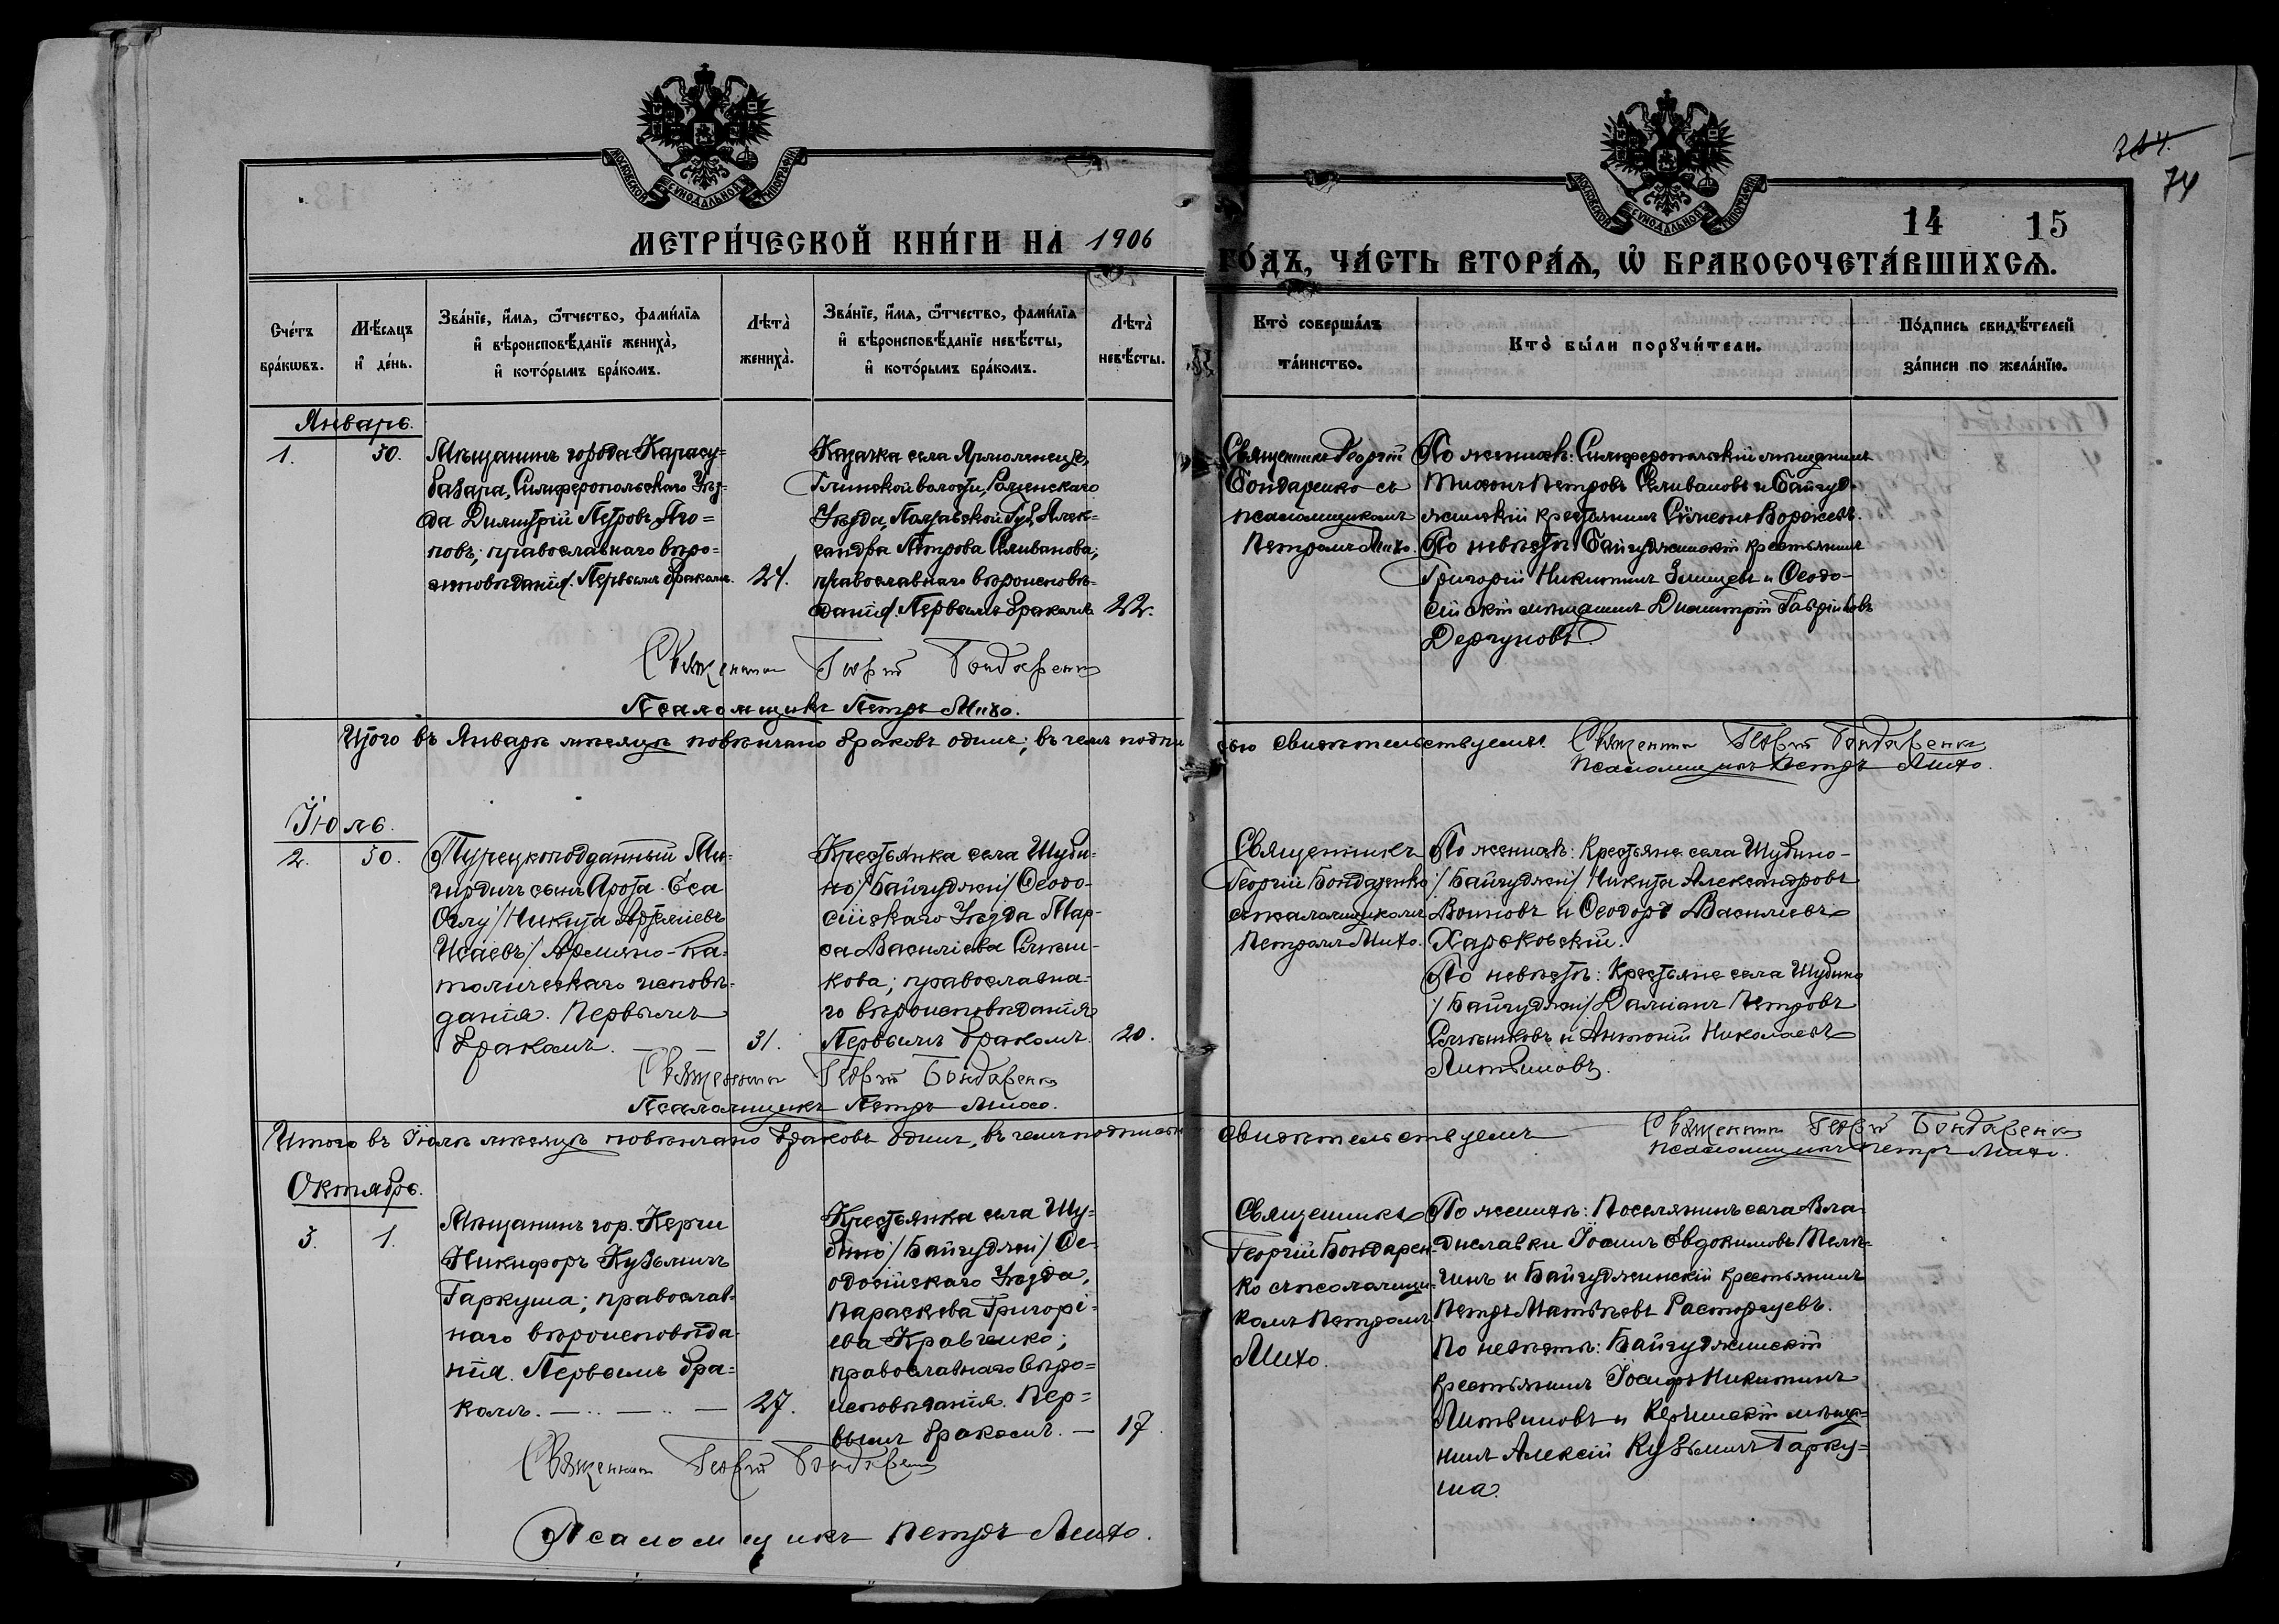 МОСКОВСКОЙ СѴНОДАЛЬНОЙ ТИПОГРАФІИ
МОСКОВСКОЙ СѴНОДАЛЬНОЙ ТИПОГРАФІИ
74
14 15
МЕТРИ́ЧЕСКОЙ КНИ́ГИ НА 1906
ГО́ДЪ, ЧА́СТЬ ВТОРА́Ѧ, Ѡ҆ БРАКОСОЧЕТА́ВШИХСѦ.
Сче́тъ
бра́кѡвъ.
Мѣ́сяцъ
и҆ де́нь.
Зва́нїе, и҆́мѧ, ѻ҆́тчество, фами́лїѧ
и҆ вѣроисповѣ́данїе жениха̀,
и҆ кото́рымъ бра́комъ.
Лѣ́та̀
жениха̀.
Зва́нїе, и҆́мѧ, ѻ҆́тчество, фами́лїѧ
и҆ вѣроисповѣ́данїе невѣ́сты,
и҆ кото́рымъ бра́комъ.
Лѣ́та̀
невѣ́сты.
Кто̀ соверша́лъ
та́инство.
Кто̀ бы́ли порꙋчи́тели.
По́дпись свидѣ́телей
за́писи по жела́нїю.
Январь.
1.
30.
Мѣщанинъ города Карасу-
базара, Симферопольскаго Уѣз-
да Димитрій Петровъ
повъ; православнаго вѣро-
исповѣданія. Первымъ бракомъ.
24.
Казачка села Ярмоленецъ,
Глинской волости, Роменскаго
Уѣзда, Полтавской Губ. Алек-
сандра Петрова Селиванова,
православнаго вѣроисповѣ-
данія. Первымъ бракомъ
22.
Священникъ Георгій
Бондаренко съ
псаломщикомъ
Петромъ Михо.
По женихѣ: Симферопольскій мѣщанинъ
Тихонъ Петровъ Селивановъ и Байгуд-
жинскій крестьянинъ Сѵмеонъ
По невѣстѣ: Байгуджинскій крестьянинъ
Григорій Никитинъ и Ѳеодо-
сійскій мѣщанинъ Димитрій Гавріиловъ
Дергуновъ.
Священникъ Георгій Бондаренко
Псаломщикъ Петръ Михо.
Итого въ Январѣ мѣсяцѣ повѣнчано браковъ одинъ; въ чемъ подпи
сью свидѣтельствуемъ. Священникъ Георгій Бондаренко
Псаломщикъ Петръ Михо.
Іюль.
2.
30.
Турецкоподданный Ми-
гирдичъ сынъ Арота Еса
Оглу /Никита Артемьевъ
Исаевъ/ Армяно-ка-
толическаго исповѣ-
данія. Первымъ
бракомъ.
31.
Крестьянка села Шуби-
но /Байгуджи/ Ѳеодо-
сійскаго Уѣзда Мар-
ѳа Василіева Сѣтни-
кова; православна-
го вѣроисповѣданія
Первымъ бракомъ.
20.
Священникъ
Георгій Бондаренко
съ псаломщикомъ
Петромъ Михо.
По женихѣ: Крестьяне села Шубино-
/Байгуджи/ Никита Александровъ
Воиновъ и Ѳеодоръ Василіевъ
Харьковскій.
По невѣстѣ: Крестьяне села Шубино
/Байгуджи/ Даміанъ Петровъ
и Антоній Николаевъ
Литвиновъ.
Священникъ Георгій Бондаренко
Псаломщикъ Петръ Михо.
Итого въ Іюлѣ мѣсяцѣ повѣнчано браковъ одинъ, въ чемъ подписью
свидѣтельствуемъ Священникъ Георгій Бондаренко
Псаломщикъ Петръ Михо.
Октябрь.
3.
1.
Мѣщанинъ гор. Керчи
Никифоръ Кузьминъ
Гаркуша; православ-
наго вѣроисповѣда-
нія. Первымъ бра-
комъ.
27.
Крестьянка села Шу-
бино /Байгуджи/ Ѳе-
одосійскаго Уѣзда,
Параскева Григорі-
ева Кравченко;
православнаго вѣро-
исповѣданія. Пер-
вымъ бракомъ. —
17
Священникъ
Георгій Бондарен-
ко съ псаломщи-
комъ Петромъ
Михо.
По женихѣ: Поселянинъ села Вла-
диславки Іоаннъ Евдокимовъ
и Байгуджинскій крестьянинъ
Петръ Матвѣевъ Расторгуевъ.
По невѣстѣ: Байгуджинскій
крестьянинъ Іосифъ Никитинъ
Литвиновъ и Керченскій мѣща-
нинъ Алексій Кузьминъ Гарку-
ша.
Священникъ Георгій Бондаренко
Псаломщикъ Петръ Михо.